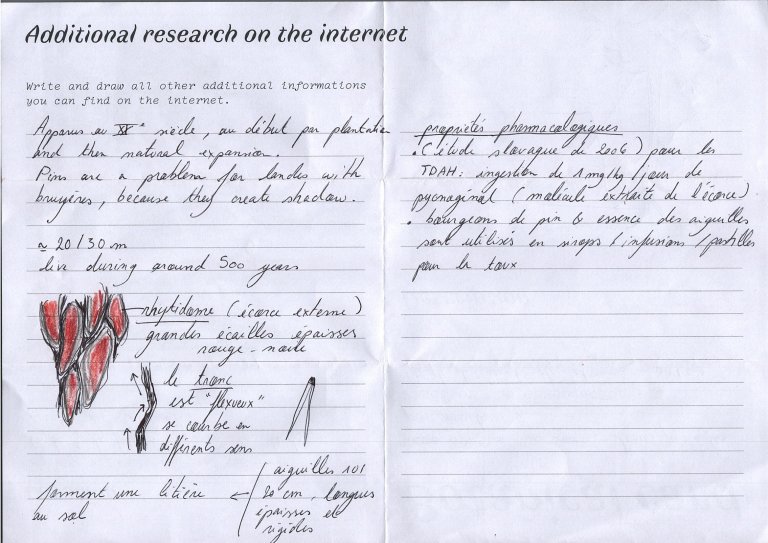 Additional research on the internet
Write and draw all other additional informations
you can find on the internet.
Apparus au XXe siècle, au début par plantation
and then natural expansion.
Pins are a problem for landes with
bruyères, because they create shadow.
≈ 20/30 m
live during around 500 years
rhytidome (écorce externe)
grandes écailles épaisses
rouge-noire
le tronc
est "flexueux"
se courbe en
différents sens
aiguilles 10/
20 cm, longues
épaisses et
rigides
forment une litière
au sol
propriétés pharmacologiques
• (étude slovaque de 2006) pour les
TDAH : ingestion de 1 mg/kg/jour de
pycnogénal (molécule extraite de l'écorce)
• bourgeons de pin & essence des aiguilles
sont utilisés en sirops / infusions / pastilles
pour la toux